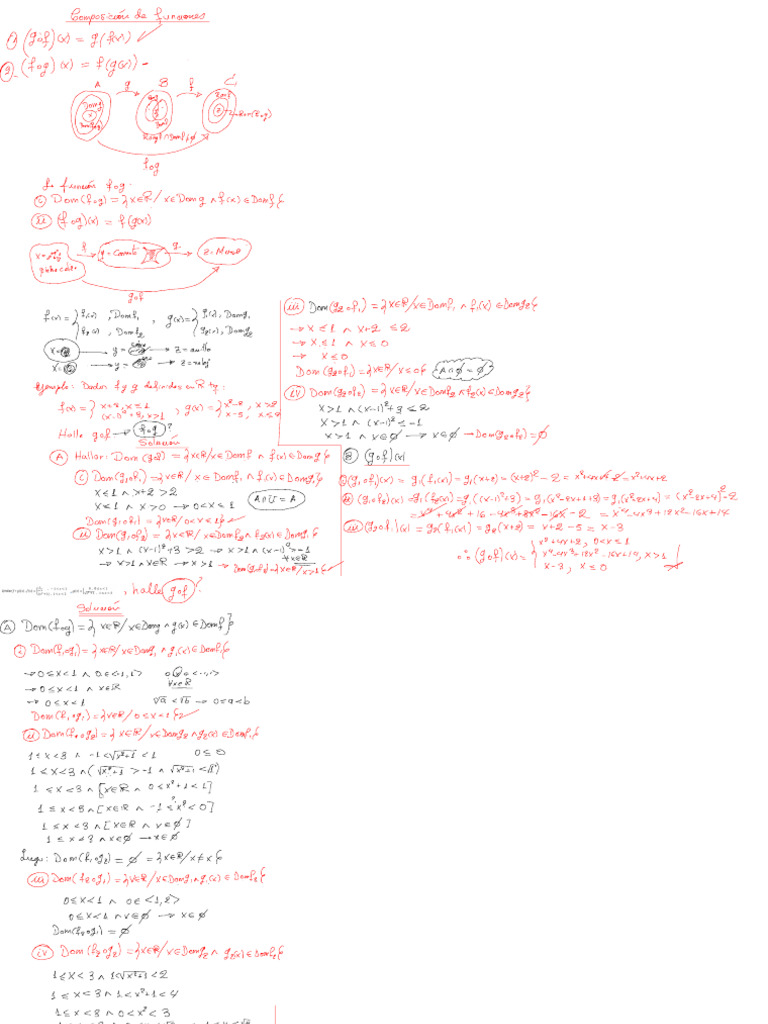 Composición de funciones
1) (gof)(x) = g(f(x))
2) (fog)(x) = f(g(x))
A g B f C
Domg
x
fog
La función fog:
i) Dom(fog) = {x∈R / x∈Domg ∧ f(x)∈Domf}
ii) (fog)(x) = f(g(x))
f g
gof
f(x) = { f₁(x), Domf₁
f₂(x), Domf₂ , g(x) = { g₁(x), Domg₁
g₂(x), Domg₂
x = → y = → z =
x = → y = → z =
Ejemplo: Dadas f y g definidas en R tq:
f(x) = { x+2, x≤1
(x-1)²+3, x>1 , g(x) = { x²-2, x>2
x-5, x≤2
Halle gof fog ?
Solución
A Hallar: Dom(gof) = {x∈R / x∈Domf ∧ f(x)∈Domg}
i) Dom(g₁of₁) = {x∈R / x∈Domf₁ ∧ f₁(x)∈Domg₁}
x≤1 ∧ x+2>2
x≤1 ∧ x>0 → 0<x≤1
A∩U = A
Dom(g₁of₁) = {x∈R / 0<x≤1}
ii) Dom(g₁of₂) = {x∈R / x∈Domf₂ ∧ f₂(x)∈Domg₁}
x>1 ∧ (x-1)²+3>2 → x>1 ∧ (x-1)²>-1
∀x∈R
→ x>1 ∧ x∈R → x>1 → Dom(g₁of₂) = {x∈R / x>1}
iii) Dom(g₂of₁) = {x∈R / x∈Domf₁ ∧ f₁(x)∈Domg₂}
→ x≤1 ∧ x+2≤2
→ x≤1 ∧ x≤0
→ x≤0
Dom(g₂of₁) = {x∈R / x≤0} A∩∅ = ∅
iv) Dom(g₂of₂) = {x∈R / x∈Domf₂ ∧ f₂(x)∈Domg₂}
x>1 ∧ (x-1)²+3≤2
x>1 ∧ (x-1)²≤-1
x>1 ∧ x∈∅ → x∈∅ → Dom(g₂of₂) = ∅
B (gof)(x)
i) (g₁of₁)(x) = g₁(f₁(x)) = g₁(x+2) = (x+2)²-2 = x²+4x+4-2 = x²+4x+2
ii) (g₁of₂)(x) = g₁(f₂(x)) = g₁((x-1)²+3) = g₁(x²-2x+1+3) = g₁(x²-2x+4) = (x²-2x+4)²-2
= x⁴-4x³+12x²-16x+14
iii) (g₂of₁)(x) = g₂(f₁(x)) = g₂(x+2) = x+2-5 = x-3
∴ (gof)(x) = { x²+4x+2, 0<x≤1
x⁴-4x³+12x²-16x+14, x>1
x-3, x≤0
, halle gof ?
Solución
A Dom(fog) = {x∈R / x∈Domg ∧ g(x)∈Domf}
i) Dom(f₁og₁) = {x∈R / x∈Domg₁ ∧ g₁(x)∈Domf₁}
→ 0≤x<1 ∧ 0∈<-1,1>
→ 0≤x<1 ∧ x∈R ∀x∈R
→ 0≤x<1 √a<√b → 0≤a<b
Dom(f₁og₁) = {x∈R / 0≤x<1}
ii) Dom(f₁og₂) = {x∈R / x∈Domg₂ ∧ g₂(x)∈Domf₁}
1≤x<3 ∧ -1<√x²+1<1 0≤0
1≤x<3 ∧ (√x²+1>-1 ∧ √x²+1<√1²)
1≤x<3 ∧ [x∈R ∧ 0≤x²+1<1]
1≤x<3 ∧ [x∈R ∧ -1≤x²<0]
1≤x<3 ∧ [x∈R ∧ x∈∅]
1≤x<3 ∧ x∈∅ → x∈∅
Luego: Dom(f₁og₂) = ∅ = {x∈R / x≠x}
iii) Dom(f₂og₁) = {x∈R / x∈Domg₁ ∧ g₁(x)∈Domf₂}
0≤x<1 ∧ 0∈<1,2>
0≤x<1 ∧ x∈∅ → x∈∅
Dom(f₂og₁) = ∅
iv) Dom(f₂og₂) = {x∈R / x∈Domg₂ ∧ g₂(x)∈Domf₂}
1≤x<3 ∧ 1<√x²+1<2
1≤x<3 ∧ 1<x²+1<4
1≤x<3 ∧ 0<x²<3